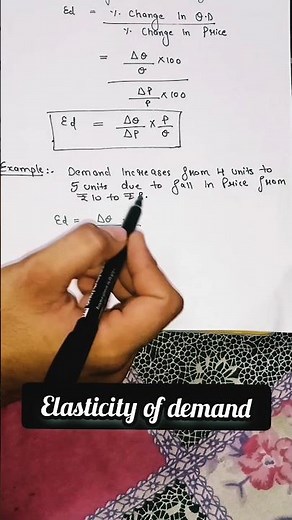 Ed = % Change In Q.D
% Change In Price
= ΔQ/Q × 100
ΔP/P × 100
Ed = ΔQ/ΔP × P/Q
Example:- Demand Increases from 4 units to
5 units due to fall in Price from
₹10 to ₹8.
Ed = ΔQ
Elasticity of demand